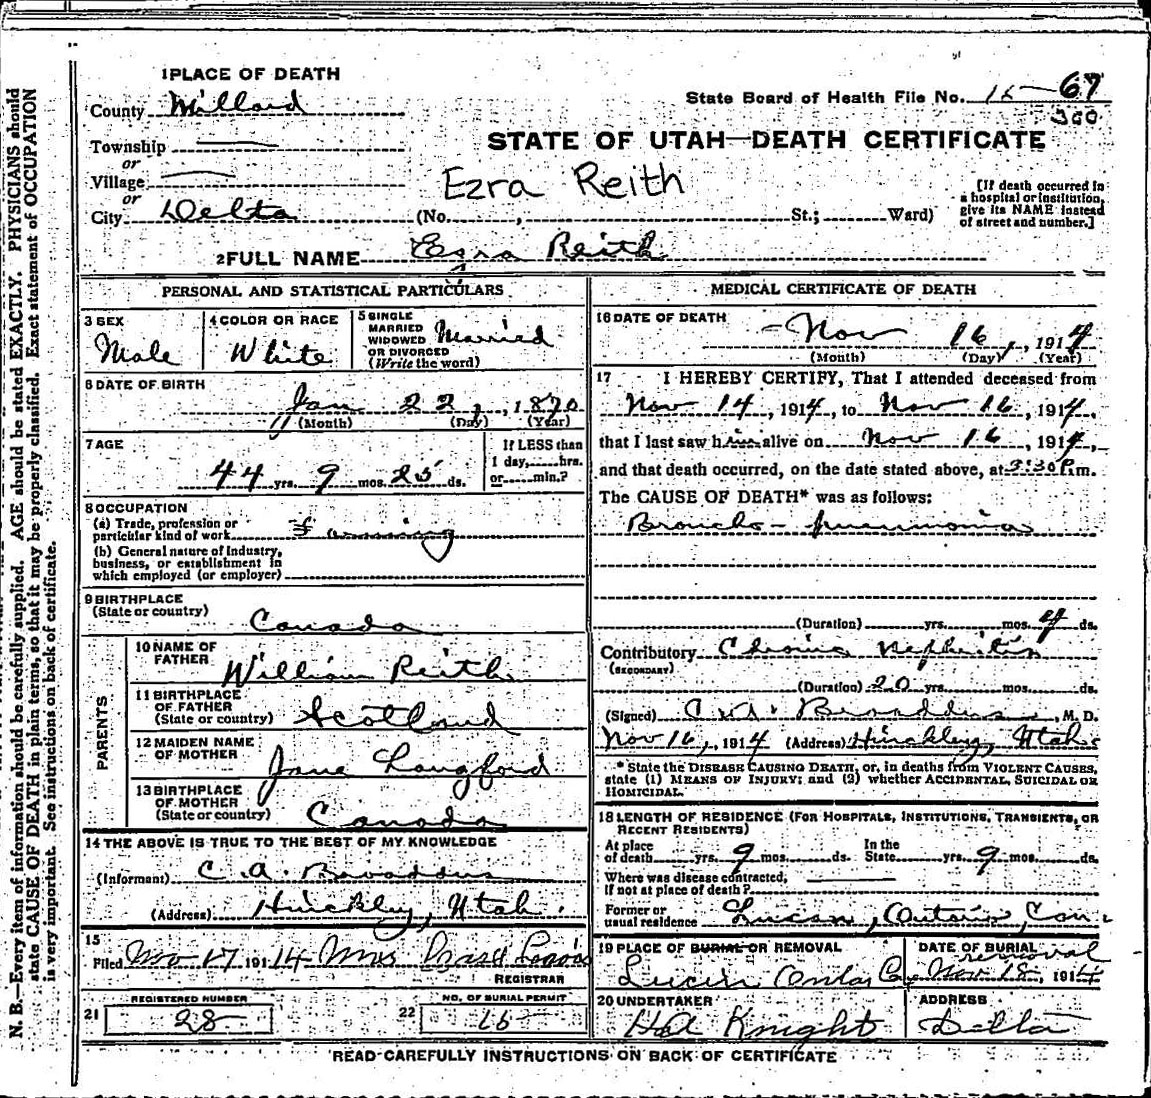 1 PLACE OF DEATH
County Millard
State Board of Health File No. 15-67
300
Township
STATE OF UTAH—DEATH CERTIFICATE
or
Village
Ezra Reith
or
City Delta (No. , St.; Ward)
[If death occurred in
a hospital or institution,
give its NAME instead
of street and number.]
2 FULL NAME Ezra Reith
PERSONAL AND STATISTICAL PARTICULARS
3 SEX
Male
4 COLOR OR RACE
White
5 SINGLE
MARRIED
WIDOWED
OR DIVORCED
(Write the word)
Married
6 DATE OF BIRTH
Jan 22, 1870
(Month) (Day) (Year)
7 AGE
44 yrs. 9 mos. 25 ds.
If LESS than
1 day, hrs.
or min.?
8 OCCUPATION
(a) Trade, profession or
particular kind of work Farming
(b) General nature of Industry,
business, or establishment in
which employed (or employer)
9 BIRTHPLACE
(State or country)
Canada
PARENTS
10 NAME OF
FATHER
William Reith
11 BIRTHPLACE
OF FATHER
(State or country) Scotland
12 MAIDEN NAME
OF MOTHER
Jane Langford
13 BIRTHPLACE
OF MOTHER
(State or country) Canada
14 THE ABOVE IS TRUE TO THE BEST OF MY KNOWLEDGE
(Informant) C. A. Broaddus
(Address) Hinckley, Utah.
15
Filed Nov 17 1914 Mrs
REGISTRAR
REGISTERED NUMBER
21 28
NO. OF BURIAL PERMIT
22 15
MEDICAL CERTIFICATE OF DEATH
16 DATE OF DEATH
Nov 16, 1914
(Month) (Day) (Year)
17 I HEREBY CERTIFY, That I attended deceased from
Nov 14, 1914, to Nov 16, 1914,
that I last saw him alive on Nov 16, 1914,
and that death occurred, on the date stated above, at 3:30 P.m.
The CAUSE OF DEATH* was as follows:
Broncho-pneumonia
(Duration) yrs. mos. 4 ds.
Contributory Chronic Nephritis
(SECONDARY)
(Duration) 20 yrs. mos. ds.
(Signed) C. A. Broaddus, M. D.
Nov 16, 1914 (Address) Hinckley, Utah
* State the DISEASE CAUSING DEATH, or, in deaths from VIOLENT CAUSES,
state (1) MEANS OF INJURY; and (2) whether ACCIDENTAL, SUICIDAL OR
HOMICIDAL.
18 LENGTH OF RESIDENCE (FOR HOSPITALS, INSTITUTIONS, TRANSIENTS, OR
RECENT RESIDENTS)
At place
of death yrs. 9 mos. ds.
In the
State yrs. 9 mos. ds.
Where was disease contracted,
If not at place of death?
Former or
usual residence Lucan, Ontario, Can.
19 PLACE OF BURIAL OR REMOVAL
DATE OF BURIAL
removal
Nov 18, 1914
20 UNDERTAKER
H A Knight
ADDRESS
Delta
READ CAREFULLY INSTRUCTIONS ON BACK OF CERTIFICATE
N. B.—Every item of information should be carefully supplied. AGE should be stated EXACTLY. PHYSICIANS should
state CAUSE OF DEATH in plain terms, so that it may be properly classified. Exact statement of OCCUPATION
is very important. See instructions on back of certificate.